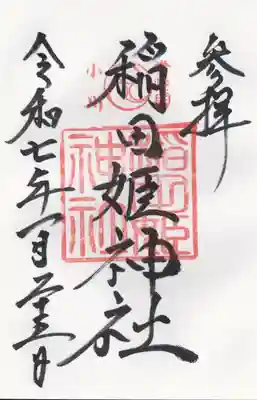 参拝
稲田姫神社
令和七年一月 日
稲田姫
神社